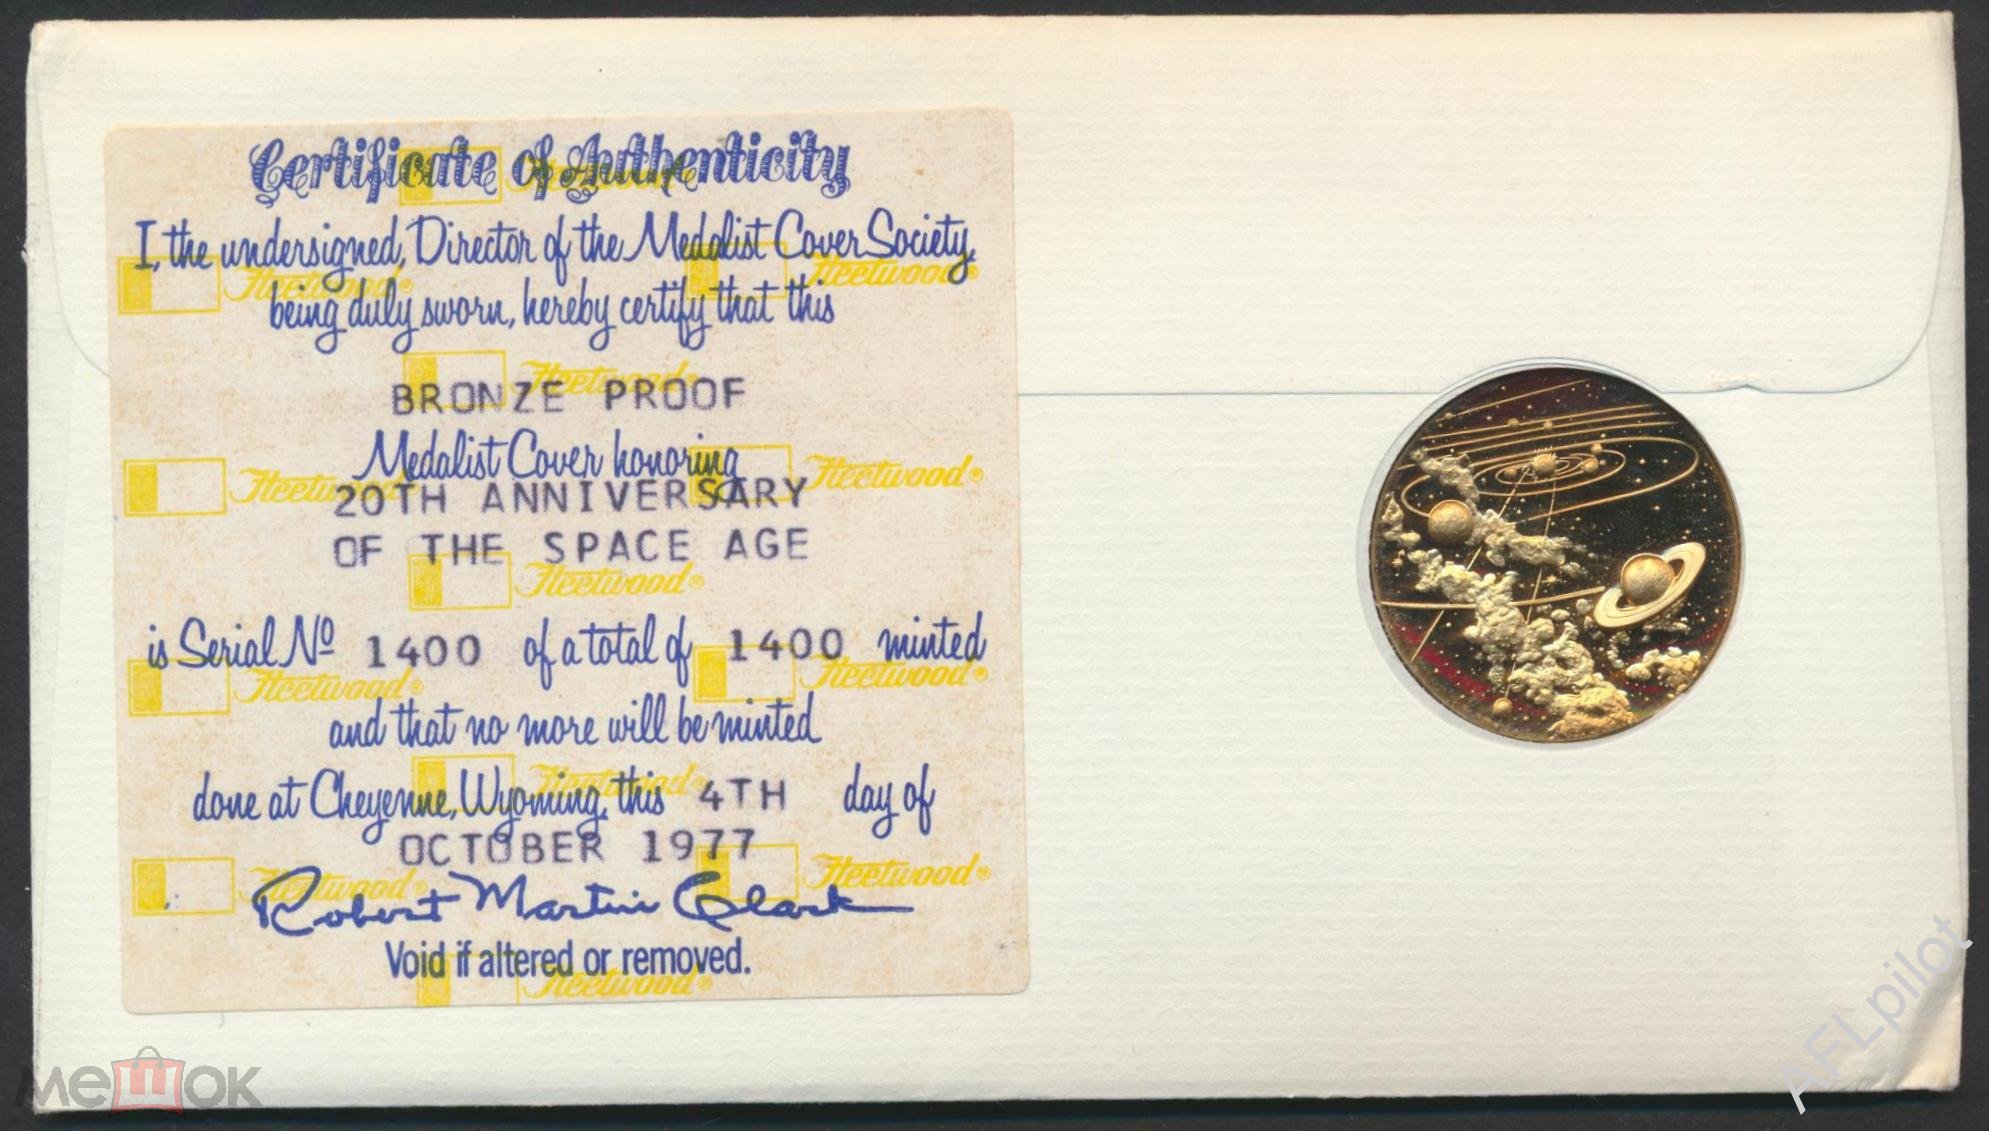 Certificate of Authenticity
I, the undersigned, Director of the Medalist Cover Society,
being duly sworn, hereby certify that this
BRONZE PROOF
Medalist Cover honoring
20TH ANNIVERSARY
OF THE SPACE AGE
is Serial Nº 1400 of a total of 1400 minted
and that no more will be minted
done at Cheyenne, Wyoming, this 4TH day of
OCTOBER 1977
Robert Martin Clark
Void if altered or removed.
Fleetwood®
Fleetwood®
Fleetwood®
Fleetwood®
Fleetwood®
Fleetwood®
Fleetwood®
Fleetwood®
Fleetwood®
Fleetwood®
Fleetwood®
Fleetwood®
Fleetwood®
мешок
AFLpilot